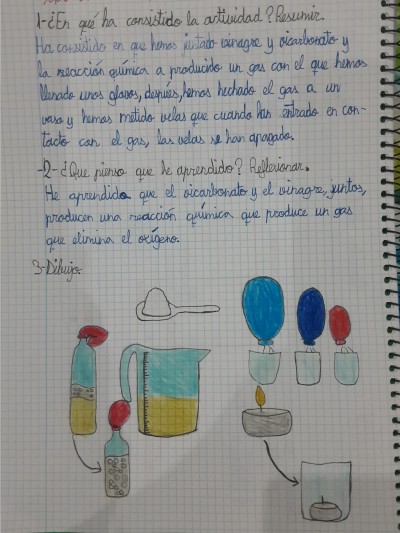 1-¿En qué ha consistido la actividad? Resumir.
Ha consistido en que hemos juntado vinagre y vicarbonato y
la reacción química a producido un gas con el que hemos
llenado unos globos, después, hemos hechado el gas a un
vaso y hemos metido velas que cuando han entrado en con-
tacto con el gas, las velas se han apagado.
-2-¿Que pienso que he aprendido? Reflexionar.
He aprendido que el vicarbonato y el vinagre, juntos,
producen una reacción química que produce un gas
que elimina el oxígeno.
3-Dibujo.